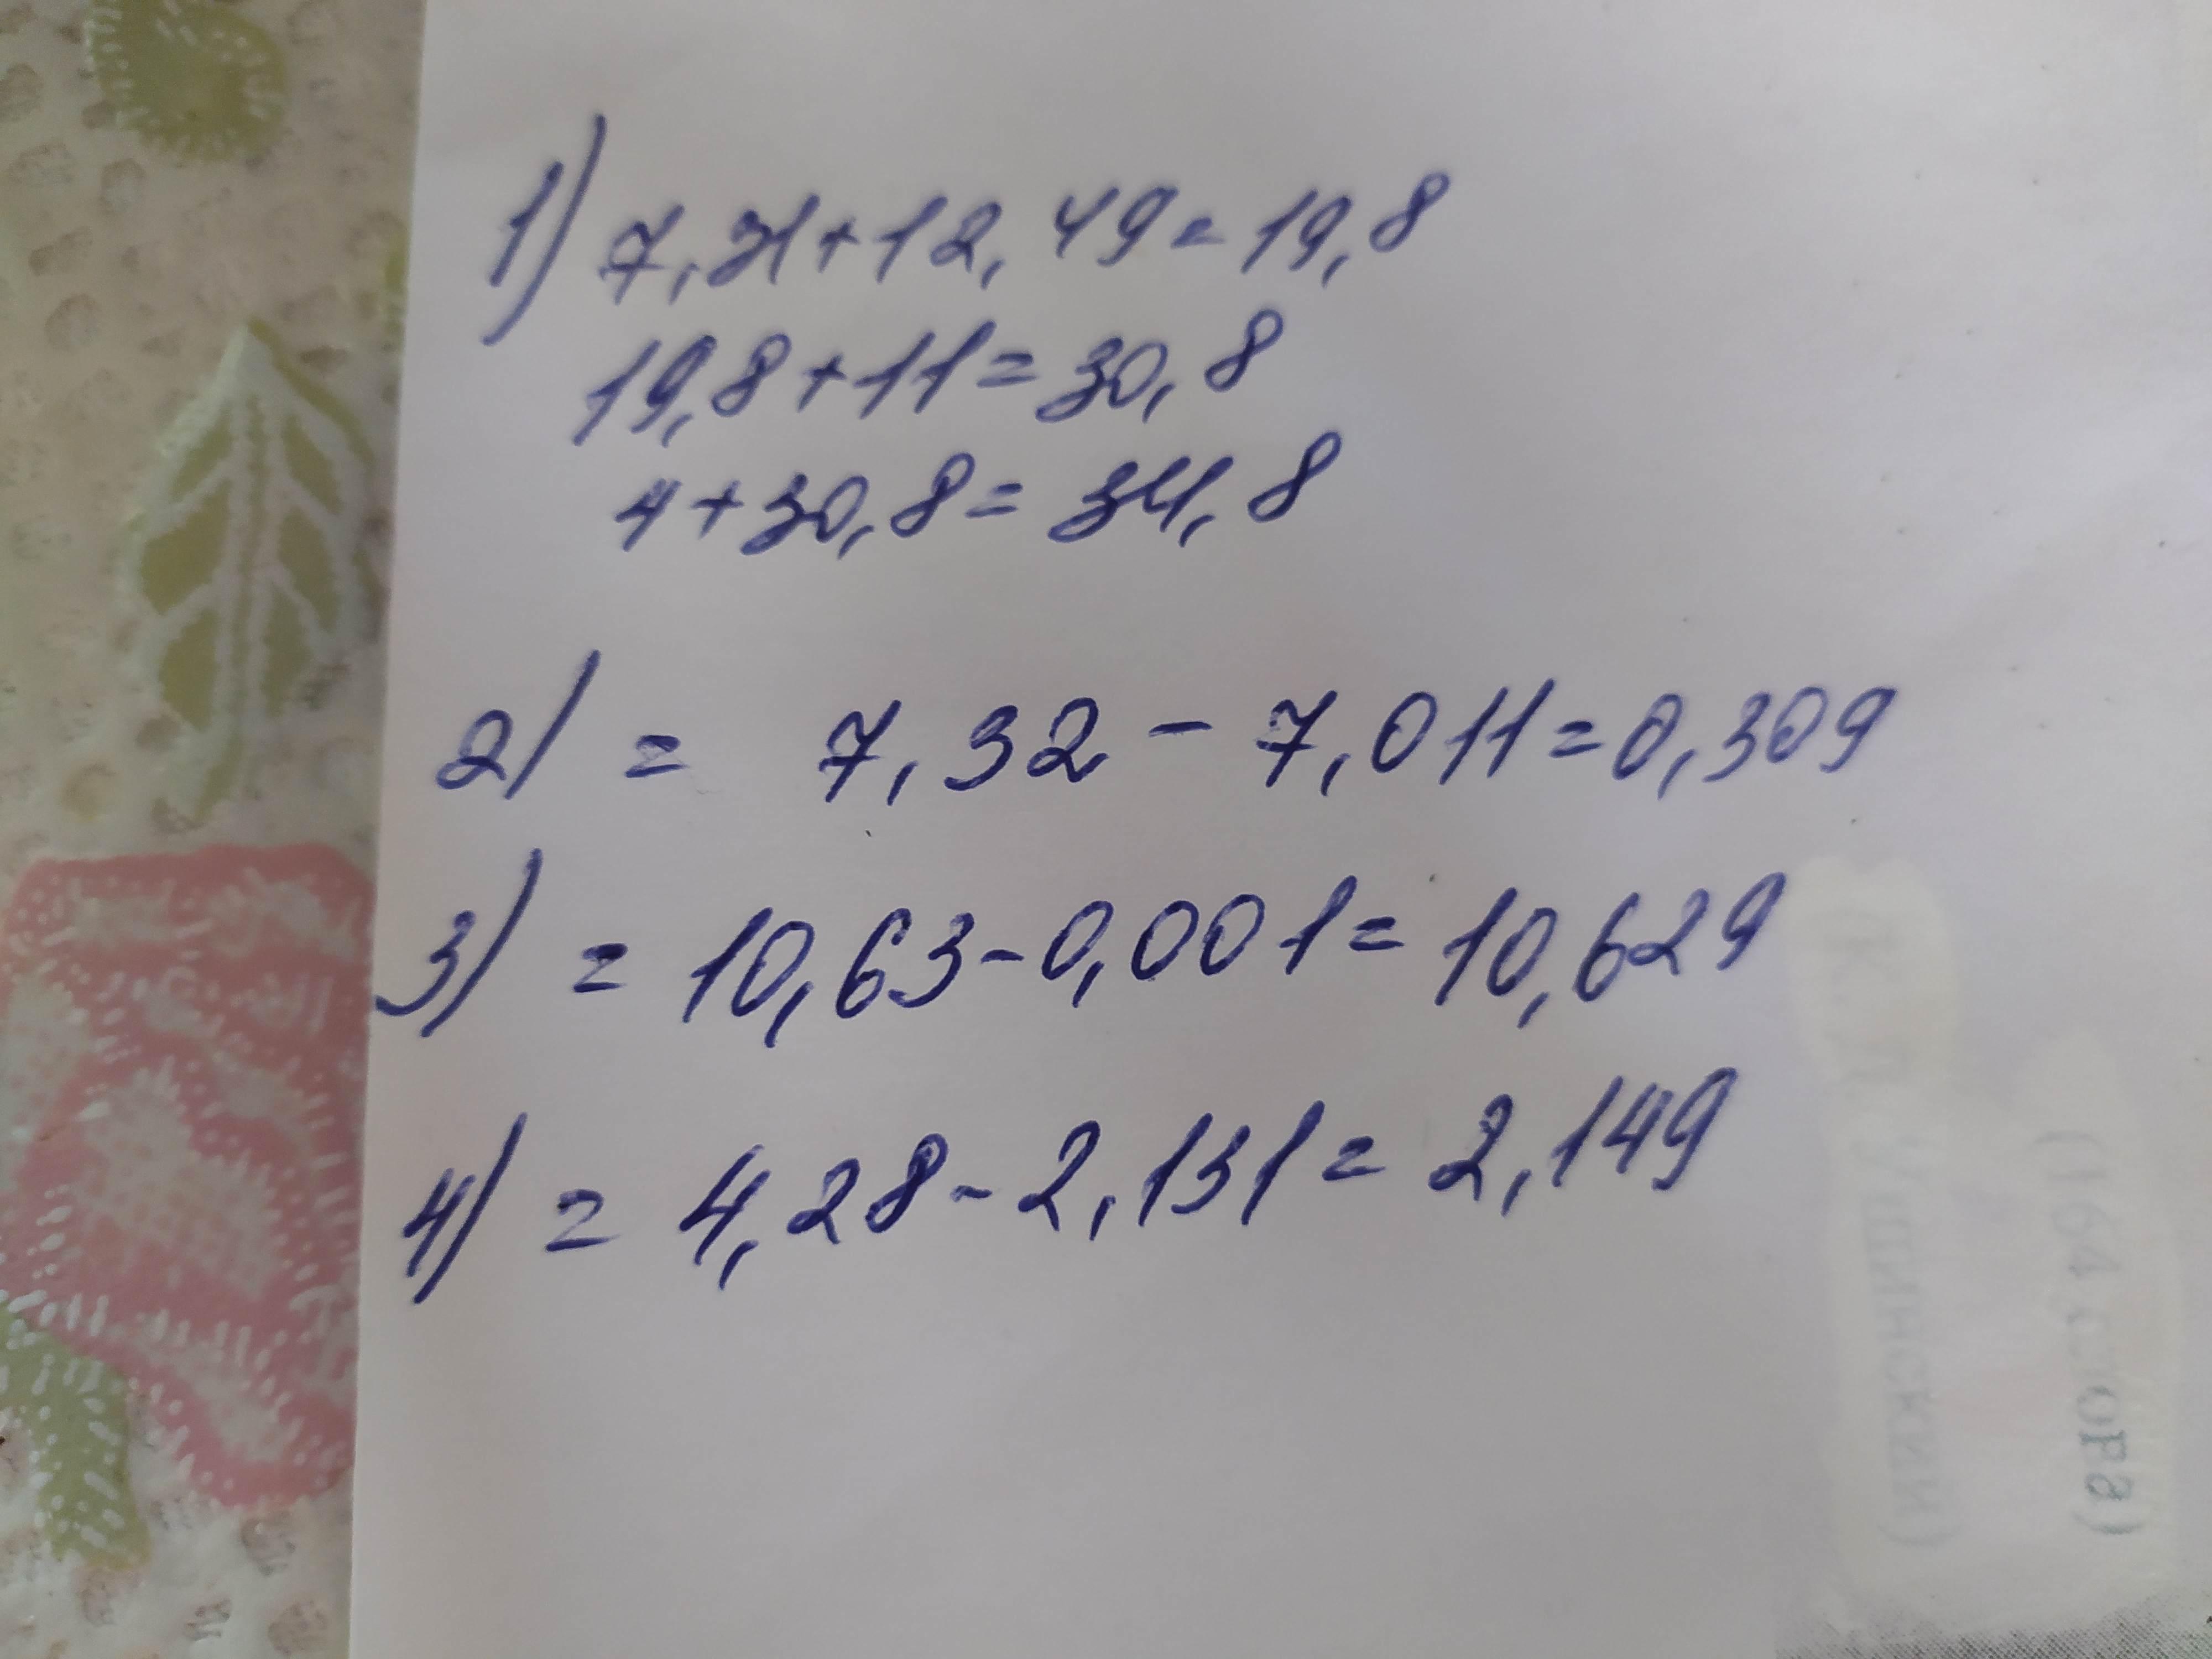 1) 7,31+12,49=19,8
19,8+11=30,8
4+30,8=34,8
2) = 7,32-7,011=0,309
3) = 10,63-0,001=10,629
4) = 4,28-2,131=2,149